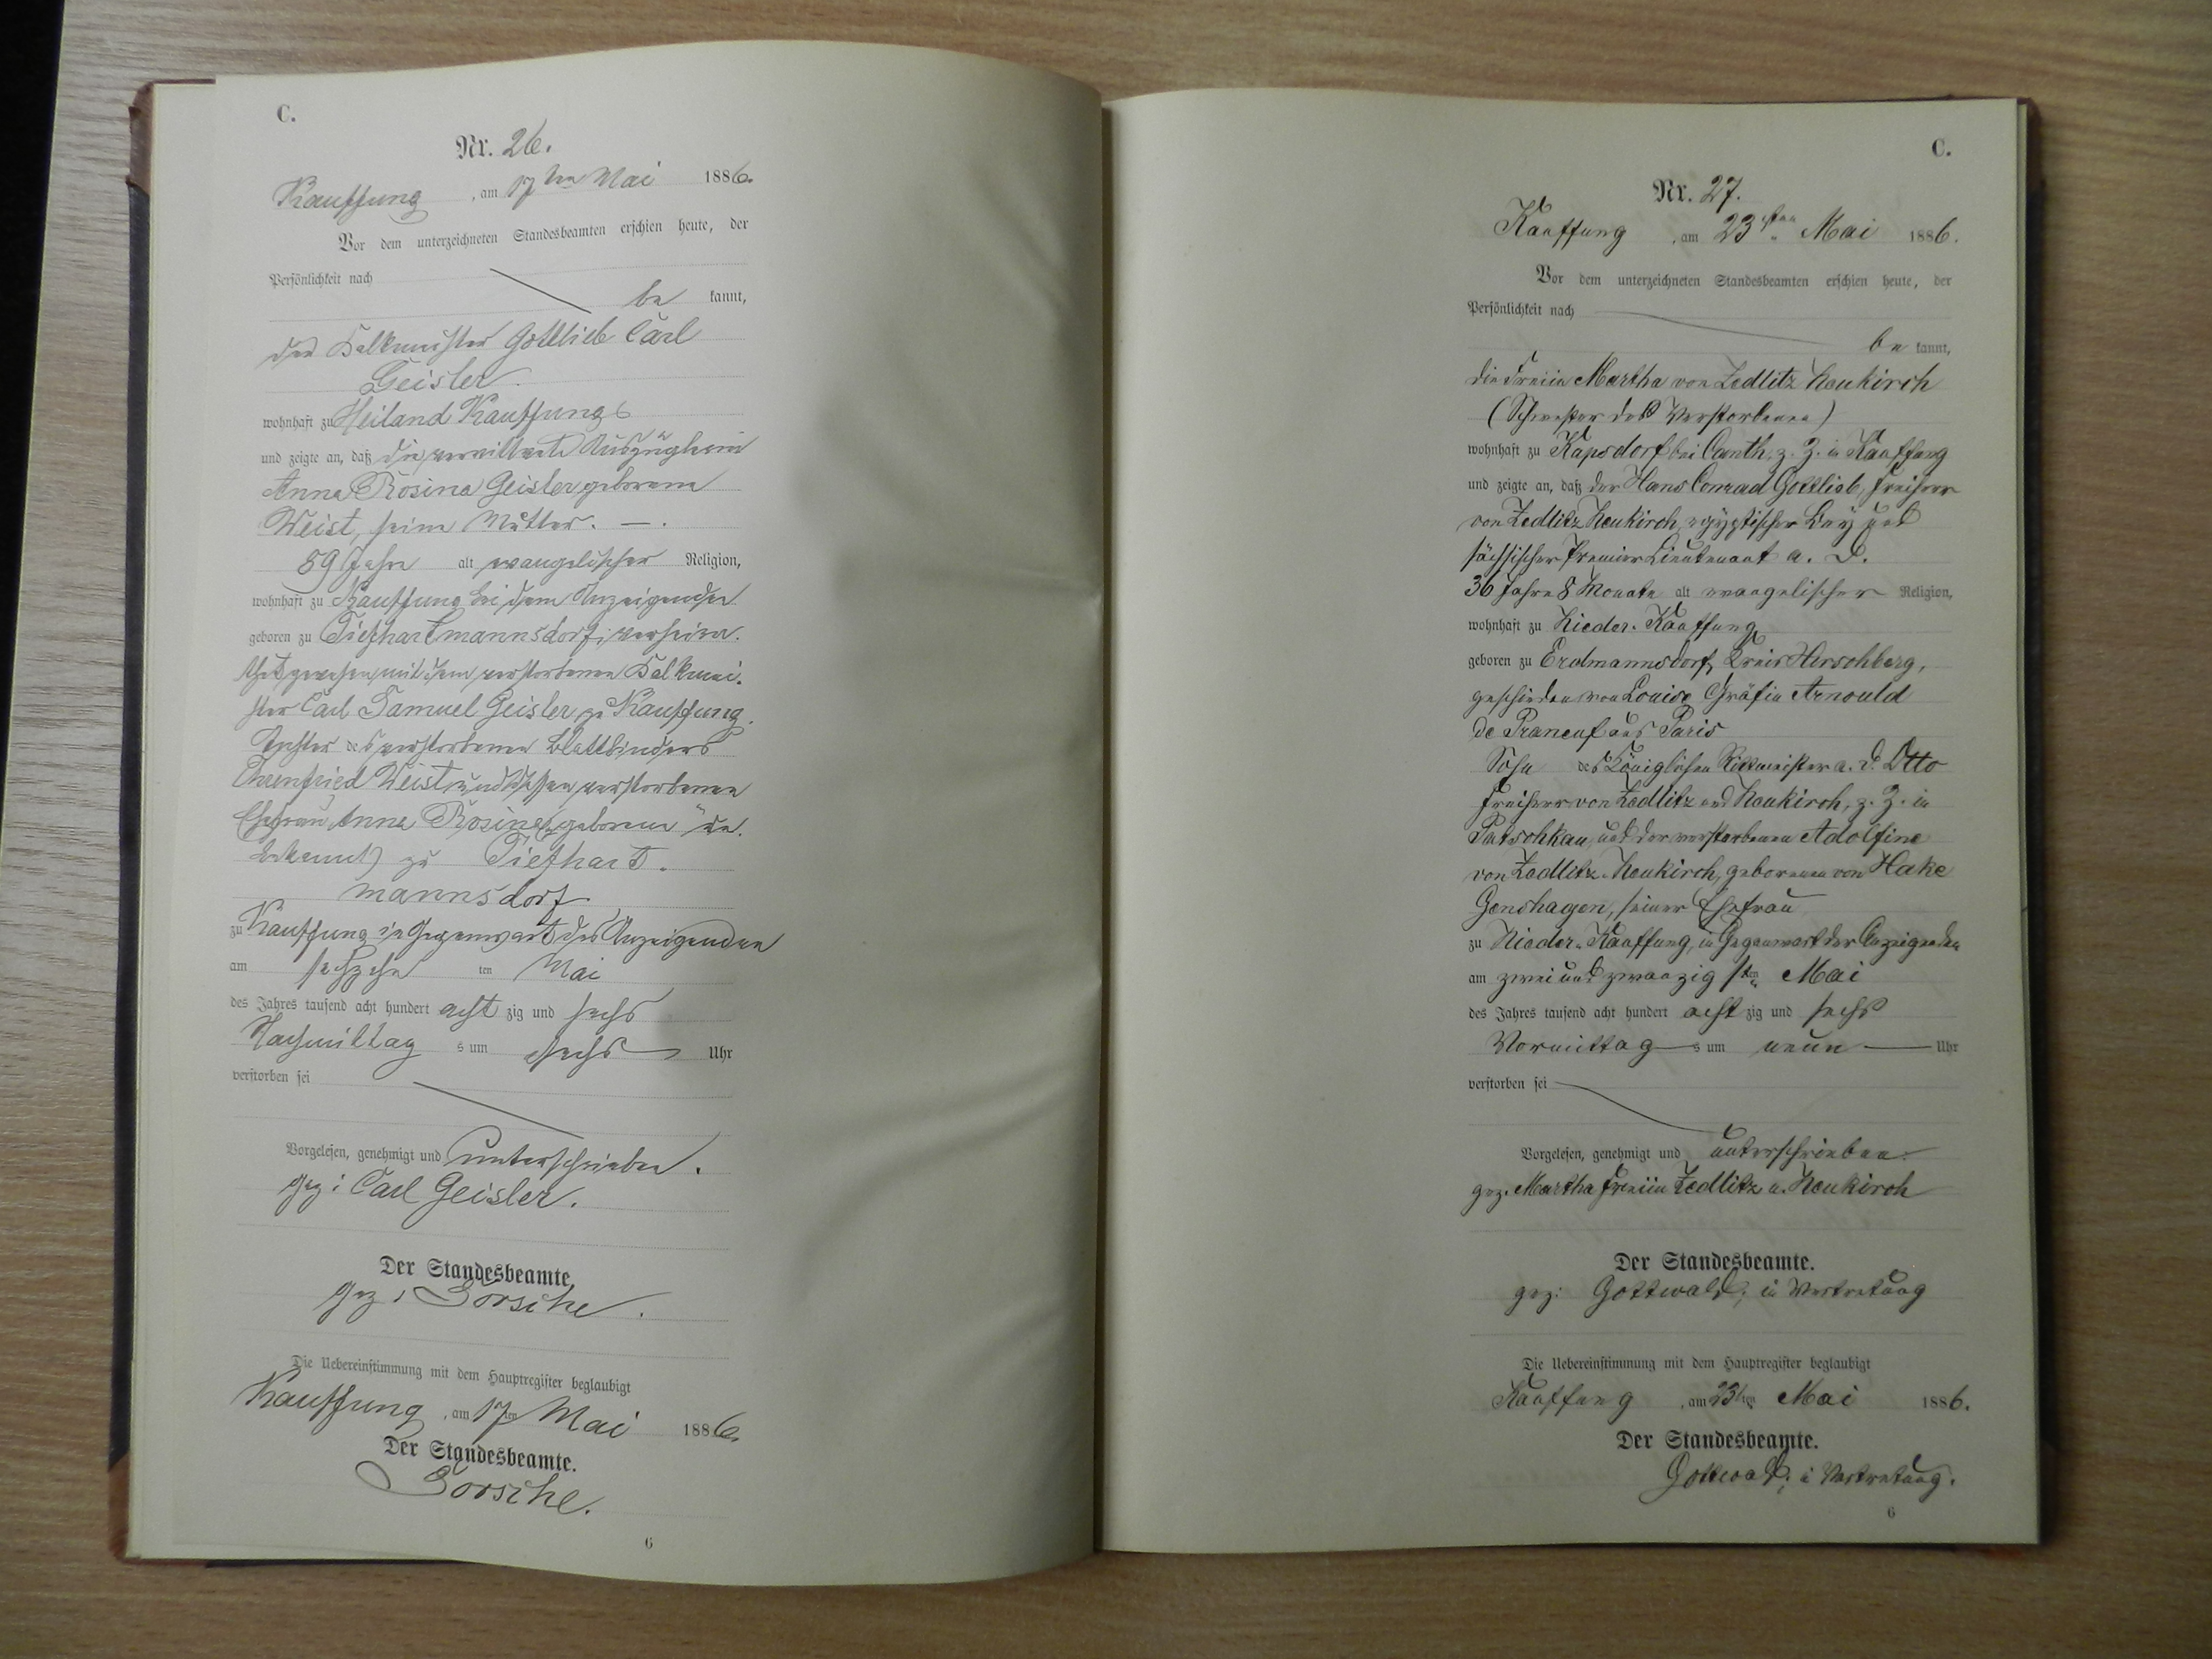 C.
Nr. 26.
Kauffung, am 17ten Mai 1886.
Vor dem unterzeichneten Standesbeamten erschien heute, der
Persönlichkeit nach
be kannt,
der Kalkmeister Gottlieb Carl
Geisler
wohnhaft zu Heiland Kauffung
und zeigte an, daß die verwittwete Auszüglerin
Anna Rosina Geisler geborene
Weist, seine Mutter. —.
89 Jahre alt evangelischer Religion,
wohnhaft zu Kauffung bei dem Anzeigenden
geboren zu Tiefhartmannsdorf, verheira-
thet gewesen mit dem verstorbenen Kalkmei-
ster Carl Samuel Geisler zu Kauffung.
Tochter des verstorbenen Blattbinders
Ehrenfried Weist, und dessen verstorbenen
Ehefrau Anna Rosina, geborene (un-
bekannt) zu Tiefhart-
mannsdorf
zu Kauffung in Gegenwart des Anzeigenden
am sechzehn ten Mai
des Jahres tausend acht hundert acht zig und sechs
Nachmittag s um sechs Uhr
verstorben sei
Vorgelesen, genehmigt und unterschrieben.
gez: Carl Geisler.
Der Standesbeamte,
gez:
Die Uebereinstimmung mit dem Hauptregister beglaubigt
Kauffung, am 17ten Mai 1886.
Der Standesbeamte.
6
C.
Nr. 27.
Kauffung, am 23sten Mai 1886.
Vor dem unterzeichneten Standesbeamten erschien heute, der
Persönlichkeit nach
be kannt,
die Freiin Martha von Zedlitz Neukirch
(Schwester des Verstorbenen)
wohnhaft zu Kapsdorf bei Canth, z. Z. in Kauffung
und zeigte an, daß der Hans Conrad Gottlieb, Freiherr
von Zedlitz Neukirch, egyptischer Bey und
sächsischer Premier Lieutenant a. D.
36 Jahre 8 Monate alt evangelischer Religion,
wohnhaft zu Nieder-Kauffung
geboren zu Erdmannsdorf, Kreis Hirschberg,
geschieden von Louise Gräfin Arnould
de Praneuf aus Paris
Sohn des Königlichen Rittmeister a. D. Otto
Freiherr von Zedlitz und Neukirch, z. Z. in
Patschkau, und der verstorbenen Adolfine
von Zedlitz-Neukirch, geborenen von Hake
Genshagen, seiner Ehefrau
zu Nieder-Kauffung, in Gegenwart der Anzeigenden
am zwei und zwanzig sten Mai
des Jahres tausend acht hundert acht zig und sechs
Vormittag s um neun Uhr
verstorben sei
Vorgelesen, genehmigt und unterschrieben.
gez. Martha Freiin Zedlitz u. Neukirch
Der Standesbeamte.
gez: Gottwald, in Vertretung
Die Uebereinstimmung mit dem Hauptregister beglaubigt
Kauffung, am 23ten Mai 1886.
Der Standesbeamte.
Gottwald, in Vertretung.
6